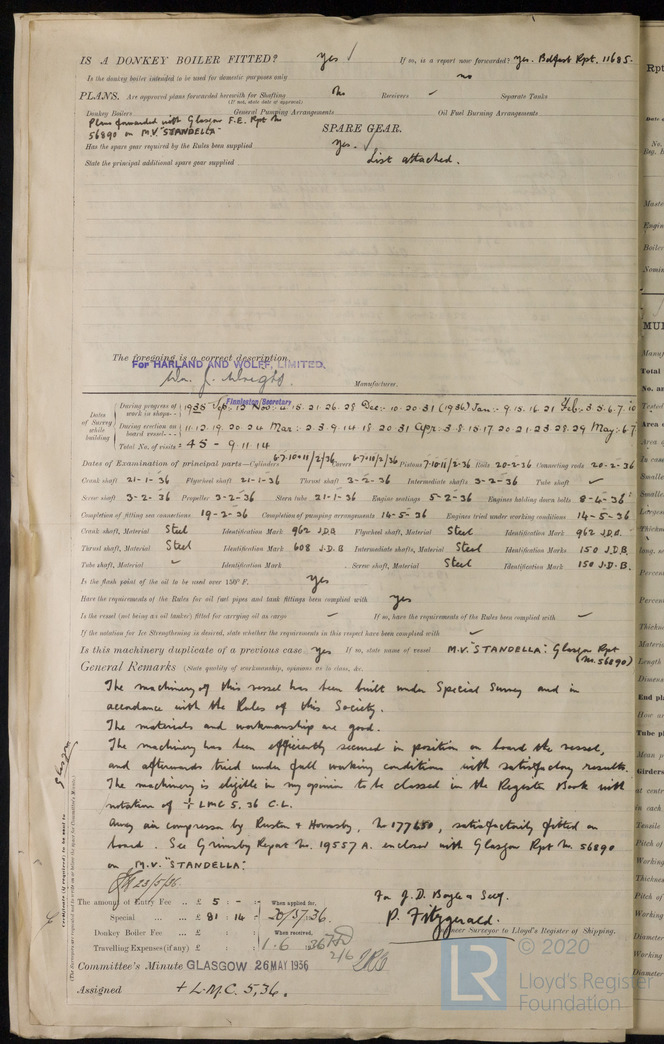 IS A DONKEY BOILER FITTED? yes ✓ If so, is a report now forwarded? yes. Belfast Rpt. 11685.
Is the donkey boiler intended to be used for domestic purposes only no
PLANS. Are approved plans forwarded herewith for Shafting No Receivers ✓ Separate Tanks
(If not, state date of approval)
Donkey Boilers General Pumping Arrangements Oil Fuel Burning Arrangements
Plans forwarded with Glasgow F.E. Rpt No
56890 on M.V. "STANDELLA"
SPARE GEAR.
Has the spare gear required by the Rules been supplied yes. ✓
State the principal additional spare gear supplied List attached.
The foregoing is a correct description,
For HARLAND AND WOLFF, LIMITED.
Wm. J. Wright. Manufacturer.
Finnieston/Secretary
Dates of Survey while building
During progress of work in shops-- 1935 Sep. 12 Nov: 4. 15. 21. 26. 28 Dec:- 10. 20. 31 (1936) Jan:- 9. 15. 16. 21 Feb:- 3. 5. 6. 7. 10
During erection on board vessel--- 11. 12. 19. 20. 24 Mar: 2. 3. 9. 14. 18. 20. 31 Apr: 3. 8. 15. 17. 20. 21. 23. 28. 29 May:- 6. 7
Total No. of visits 45 - 9. 11. 14
Dates of Examination of principal parts—Cylinders 6·7·10·11/2/36 Covers 6·7·10/2/36 Pistons 7·10·11/2·36 Rods 20-2-36 Connecting rods 20-2-36
Crank shaft 21-1-36 Flywheel shaft 21-1-36 Thrust shaft 2-2-36 Intermediate shafts 3-2-36 Tube shaft ✓
Screw shaft 3-2-36 Propeller 3-2-36 Stern tube 21-1-36 Engine seatings 5-2-36 Engines holding down bolts 8-4-36
Completion of fitting sea connections 19-2-36 Completion of pumping arrangements 14-5-36 Engines tried under working conditions 14-5-36
Crank shaft, Material Steel Identification Mark 962 J.D.B Flywheel shaft, Material Steel Identification Mark 962 J.D.B.
Thrust shaft, Material Steel Identification Mark 608 J.D.B Intermediate shafts, Material Steel Identification Marks 150 J.D.B.
Tube shaft, Material ✓ Identification Mark Screw shaft, Material Steel Identification Mark 150 J.D.B.
Is the flash point of the oil to be used over 150° F. yes
Have the requirements of the Rules for oil fuel pipes and tank fittings been complied with yes
Is the vessel (not being an oil tanker) fitted for carrying oil as cargo ✓ If so, have the requirements of the Rules been complied with ✓
If the notation for Ice Strengthening is desired, state whether the requirements in this respect have been complied with ✓
Is this machinery duplicate of a previous case yes If so, state name of vessel M.V. "STANDELLA": Glasgow Rpt
(No. 56890)
General Remarks (State quality of workmanship, opinions as to class, &c.
The machinery of this vessel has been built under Special Survey and in
accordance with the Rules of this Society.
The materials and workmanship are good.
The machinery has been efficiently secured in position on board the vessel,
and afterwards tried under full working conditions with satisfactory results.
The machinery is eligible in my opinion to be classed in the Register Book with
notation of + LMC 5.36 C.L.
Away air compressor by Ruston & Hornsby, No 177650, satisfactorily fitted on
board. See Grimsby Report No. 19557A. enclosed with Glasgow Rpt No. 56890
on M.V. "STANDELLA".
23/5/36
The amount of Entry Fee .. £ 5 : - : When applied for,
Special ... ... £ 81 : 14 :
Donkey Boiler Fee ... £ : : When received,
Travelling Expenses (if any) £ : : 1. 6 36
For J.D. Boyle & Self.
P. Fitzgerald.
Engineer Surveyor to Lloyd's Register of Shipping.
Committee's Minute GLASGOW 26 MAY 1936
Assigned + L.M.C. 5,36.
Glasgow
Certificate (if required) to be sent to
(The Surveyors are requested not to write on or below the space for Committee's Minute.)
LR
© 2020
Lloyd's Register
Foundation